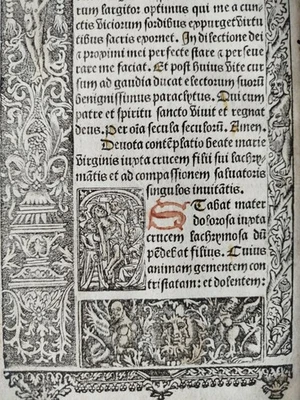 rum largitor optimus qui me a cun-
ctis viciorum sordibus expurget virtu
tibus sacris exornet. In dilectione dei
et proximi mei perfecte stare et perseue
rare me faciat. Et post huius vite cur
sum ad gaudia ducat electorum suorū
benignissimus paraclytus. Qui cum
patre et spiritu sancto viuit et regnat
deus. Per oīa secula seculorū. Amen.
Deuota contēplatio beate marie
virginis iuxta crucem filii sui lachry
mātis et ad compassionem saluatoris
singulos inuitātis.
Stabat mater
dolorosa iuxta
crucem lachrymosa dū
pēdebat filius. Cuius
animam gementem con
tristatam: et dolentem: